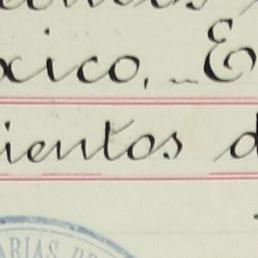 xico, _ E
ientos d
ARIAS DE